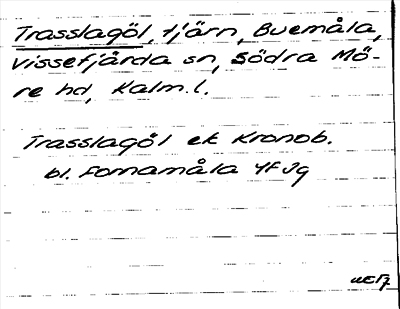 Trasslagöl, tjärn, Buemåla,
Vissefjärda sn, Södra Mö-
re hd, Kalm. l.
Trasslagöl ek Kronob.
bl. Fornamåla 4F 3g